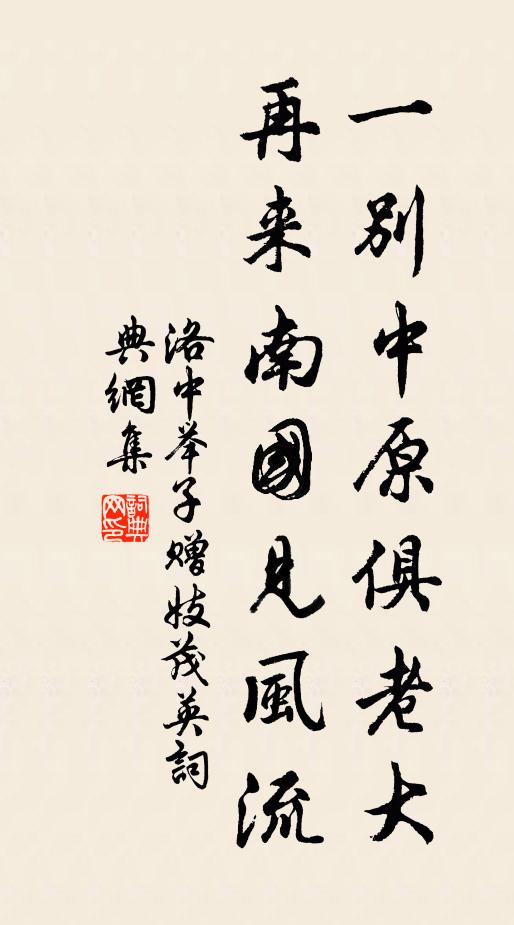 一別中原俱老大
再来南國見風流
洛中举子赠妓茂英詞
典網集
詞典
网印